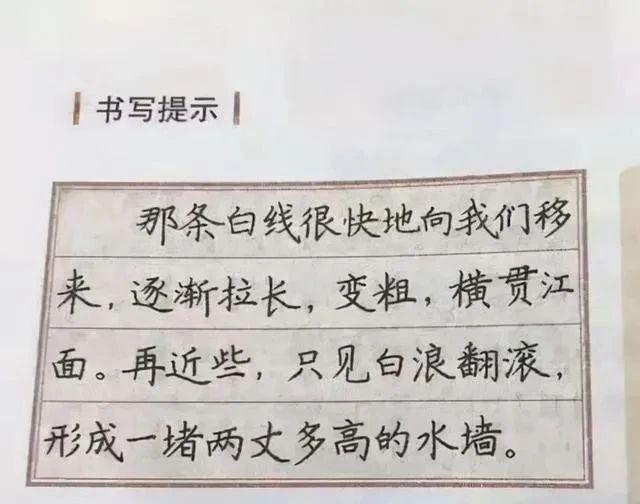 书写提示
那条白线很快地向我们移
来，逐渐拉长，变粗，横贯江
面。再近些，只见白浪翻滚，
形成一堵两丈多高的水墙。